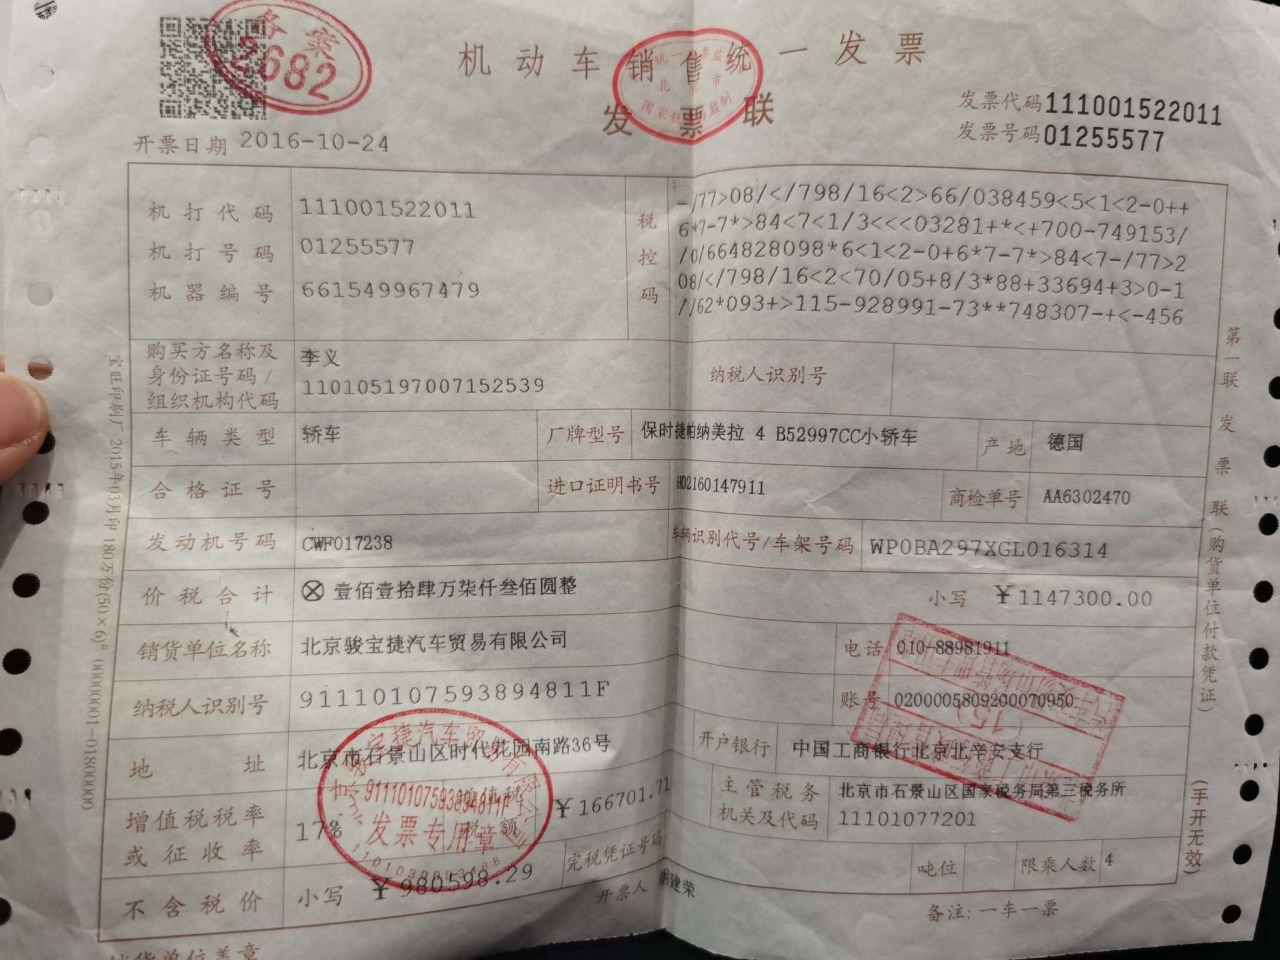 备案
2682
机动车销售统一发票
发票联
发票代码111001522011
发票号码01255577
开票日期 2016-10-24
机打代码 111001522011
机打号码 01255577
机器编号 661549967479
税控码
-/77>08/</798/16<2>66/038459<5<1<2-0++
6*7-7*>84<7<1/3<<<03281+*<+700-749153/
/0/664828098*6<1<2-0+6*7-7*>84<7-/77>2
08/</798/16<2<70/05+8/3*88+33694+3>0-1
//62*093+>115-928991-73**748307-+<-456
购买方名称及身份证号码/组织机构代码
李义
110105197007152539
纳税人识别号
车辆类型 轿车 厂牌型号 保时捷帕纳美拉 4 B52997CC小轿车 产地 德国
合格证号 进口证明书号 H02160147911 商检单号 AA6302470
发动机号码 CWF017238 车辆识别代号/车架号码 WP0BA297XGL016314
价税合计 ⊗ 壹佰壹拾肆万柒仟叁佰圆整 小写 ¥1147300.00
销货单位名称 北京骏宝捷汽车贸易有限公司 电话 010-88981911
纳税人识别号 91110107593894811F 账号 0200005809200070950
地址 北京市石景山区时代花园南路36号 开户银行 中国工商银行北京北辛安支行
增值税税率或征收率 17% 增值税税额 ¥166701.71 主管税务机关及代码 北京市石景山区国家税务局第三税务所
11101077201
不含税价 小写 ¥980598.29 完税凭证号码 吨位 限乘人数 4
销货单位盖章 开票人 胡建荣 备注:一车一票
91110107593894811F
发票专用章
第一联 发票联(购货单位付款凭证)
(手开无效)
宝旺印刷厂 2015年03月印 180万份(50×6)# 00000001-01800000